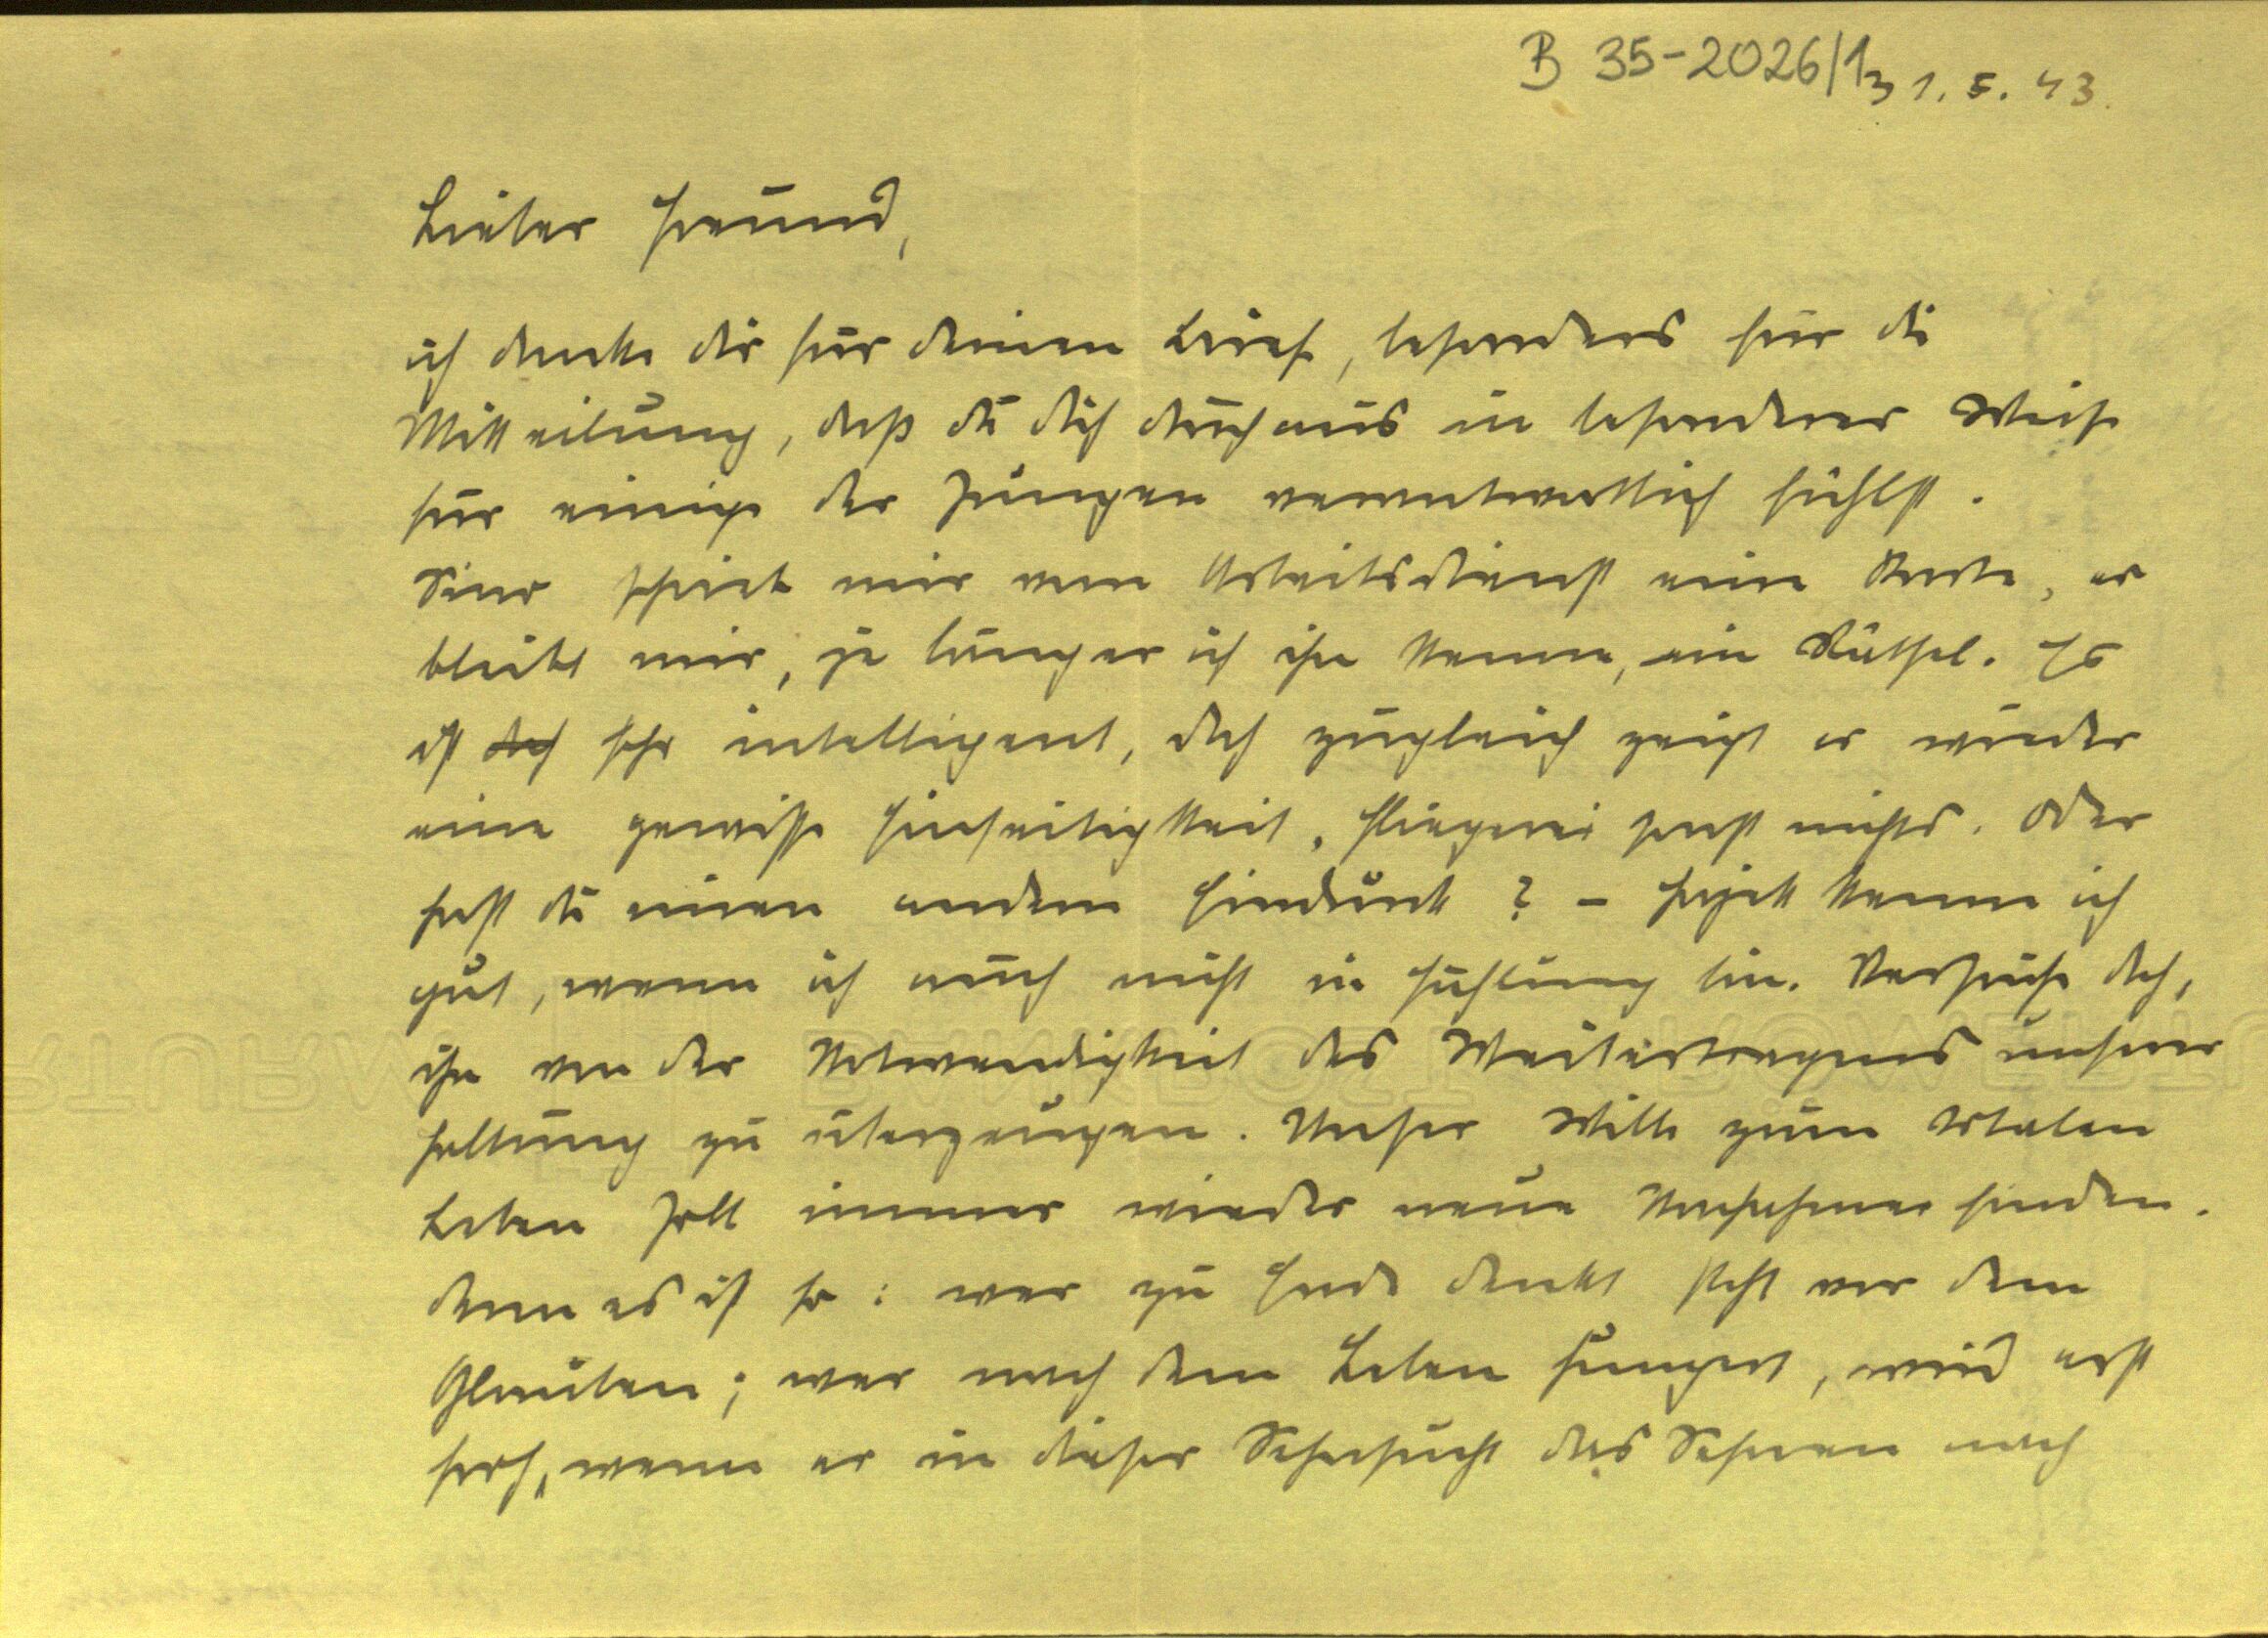 B 35-2026/1
31.5.43.
Lieber Freund,
ich danke dir für deinen Brief, besonders für die
Mitteilung, daß du dich durchaus in besonderer Weise
für einige der Jungen verantwortlich fühlst.
schrieb mir vom Arbeitsdienst eine Karte, er
bleibt mir, je länger ich ihn kenne, ein Rätsel. Er
ist doch sehr intelligent, doch zugleich zeigt er wieder
eine gewisse Einseitigkeit, Fliegerei sonst nichts. Oder
hast du einen andern Eindruck? – kenne ich
gut, wenn ich auch nicht in Fühlung bin. Versuche doch,
ihn von der Notwendigkeit des Weitertragens unserer
Haltung zu überzeugen. Unser Wille zum totalen
Leben soll immer wieder neue finden.
denn es ist so: wer zu Ende denkt steht vor dem
Glauben; wer nach dem Leben hungert, wird erst
satt, wenn er in dieser Sehnsucht das Sehnen nach